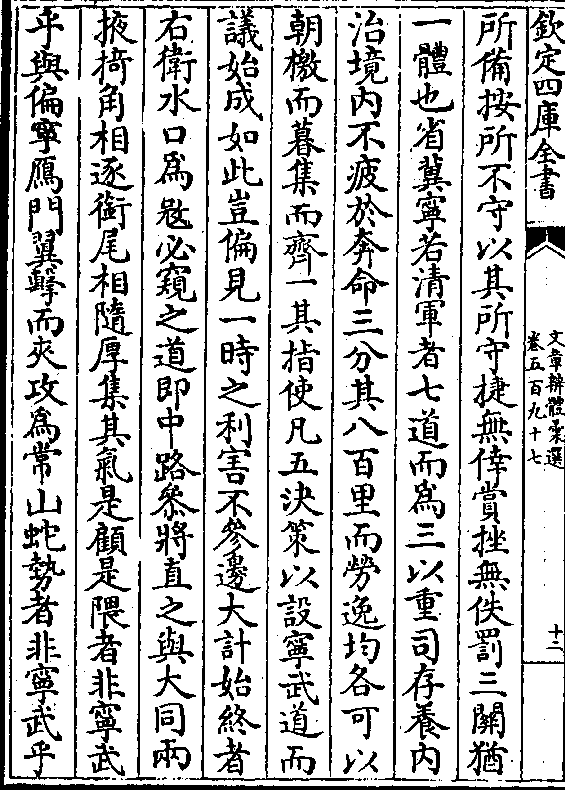 欽定四庫全書
文章辨體彙選
卷五百九十七
十二
所備按所不守以其所守捷無倖賞挫無佚罰三關猶
一體也省冀寧若清軍者七道而為三以重司存養内
治境内不疲於奔命三分其八百里而勞逸均各可以
朝檄而暮集而齊一其指使凡五決策以設寧武道而
議始成如此豈偏見一時之利害不參邊大計始終者
右衛水口為㓂必窺之道即中路叅將直之與大同兩
掖掎角相逐銜尾相隨厚集其氣是顧是隈者非寧武
乎與偏寧鴈門翼擊而夾攻為常山蛇勢者非寧武乎